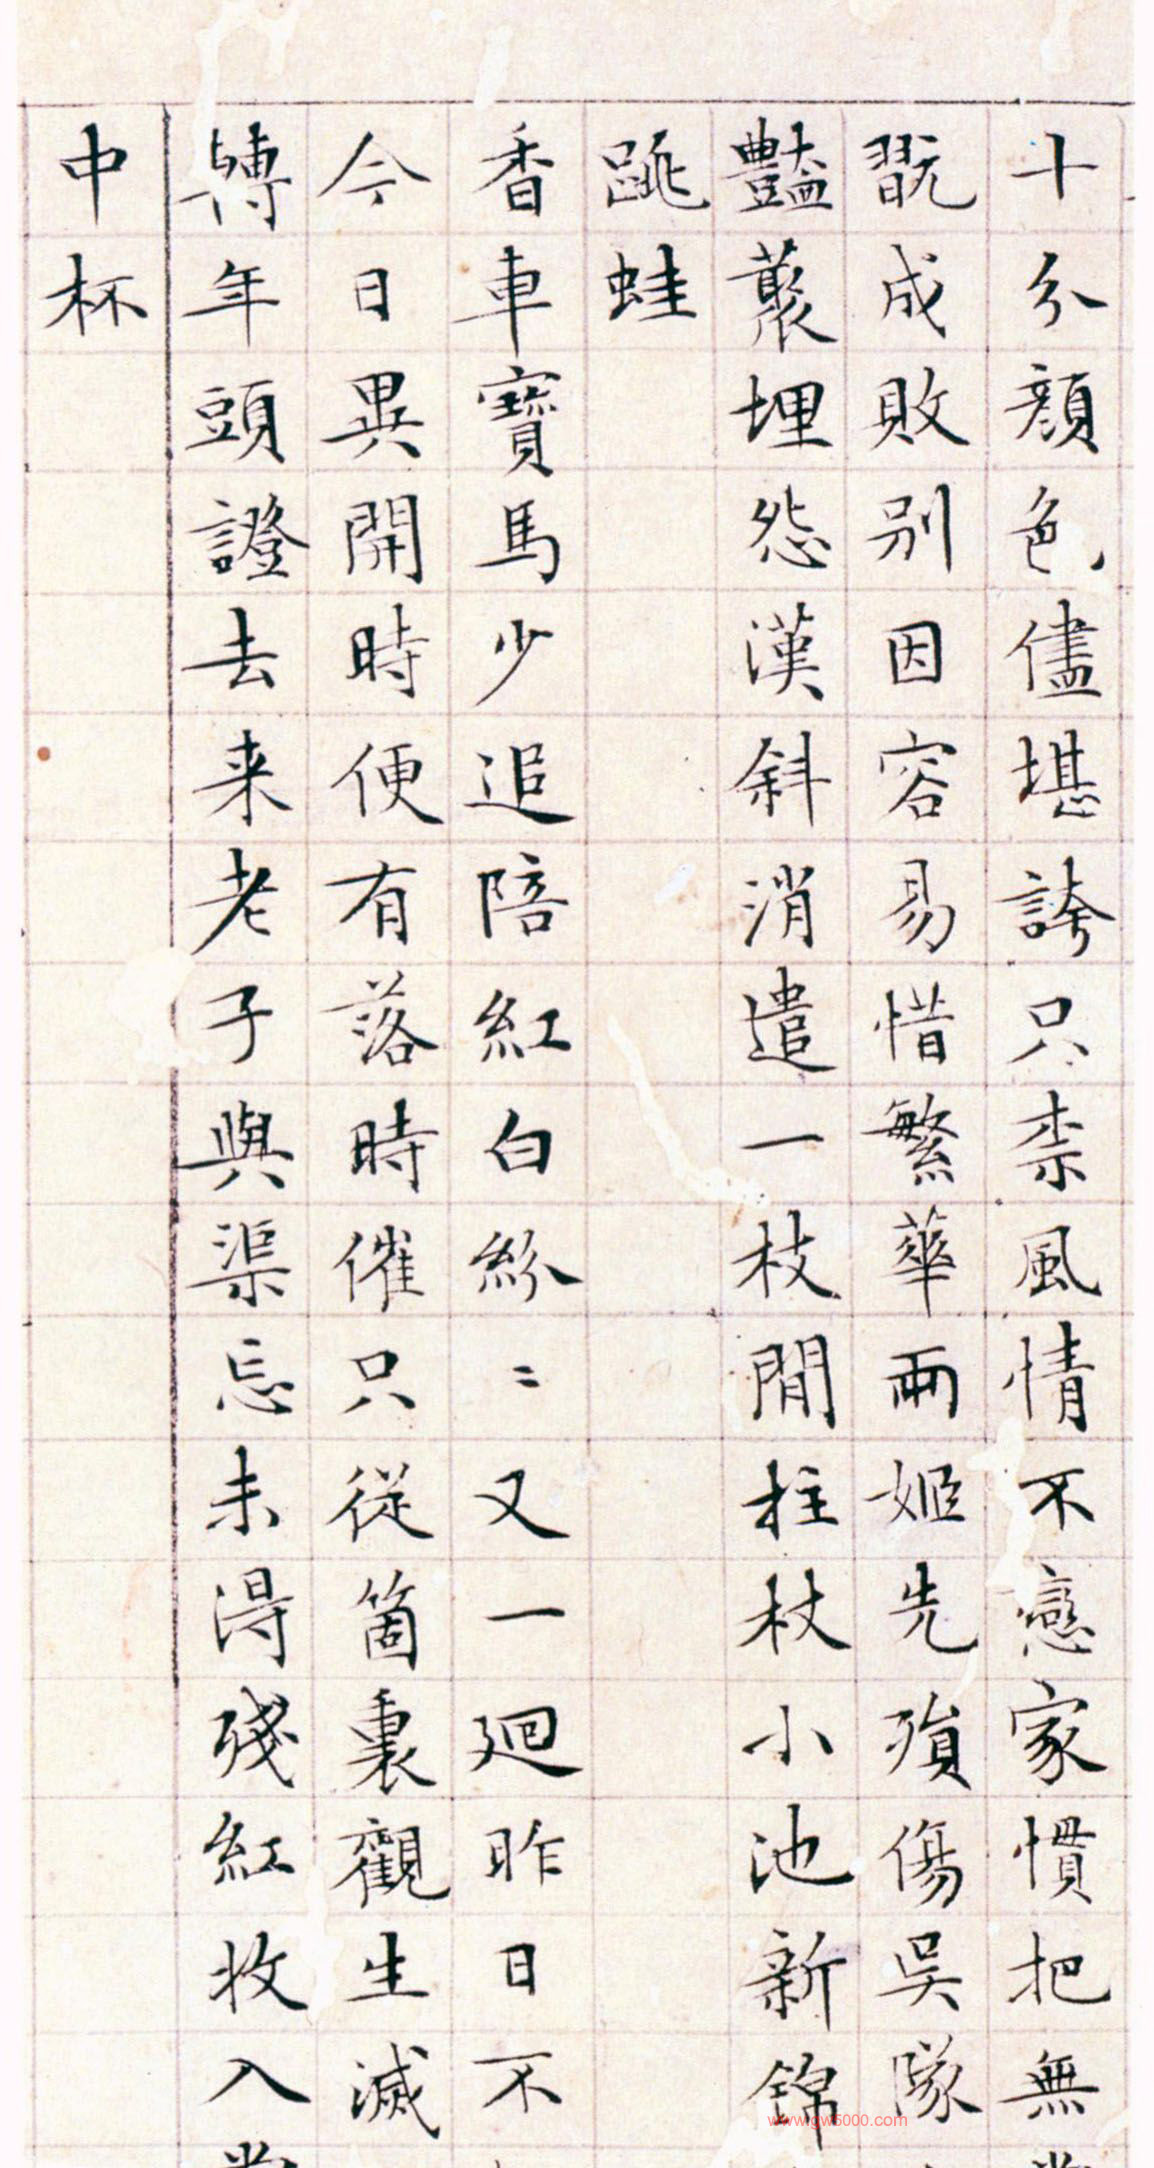 十分顏色儘堪誇只柰風情不戀家慣把無
翫成敗别因容易惜繁華兩姬先殞傷吳隊
豔䕺埋怨漢斜消遣一枝閒柱杖小池新錦
跳蛙
香車寶馬少追陪紅白紛〻又一廻昨日不
今日異開時便有落時催只從箇裏觀生滅
轉年頭證去来老子與渠忘未淂殘紅收入
中杯
www.gw5000.com